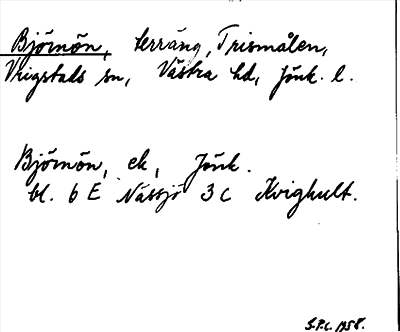 Björnön, terräng, Trismålen,
Vrigstads sn, Västra hd, Jönk. l.
Björnön, ek, Jönk.
bl. 6 E Nässjö 3 C Kvighult.
S.P.C. 1958.